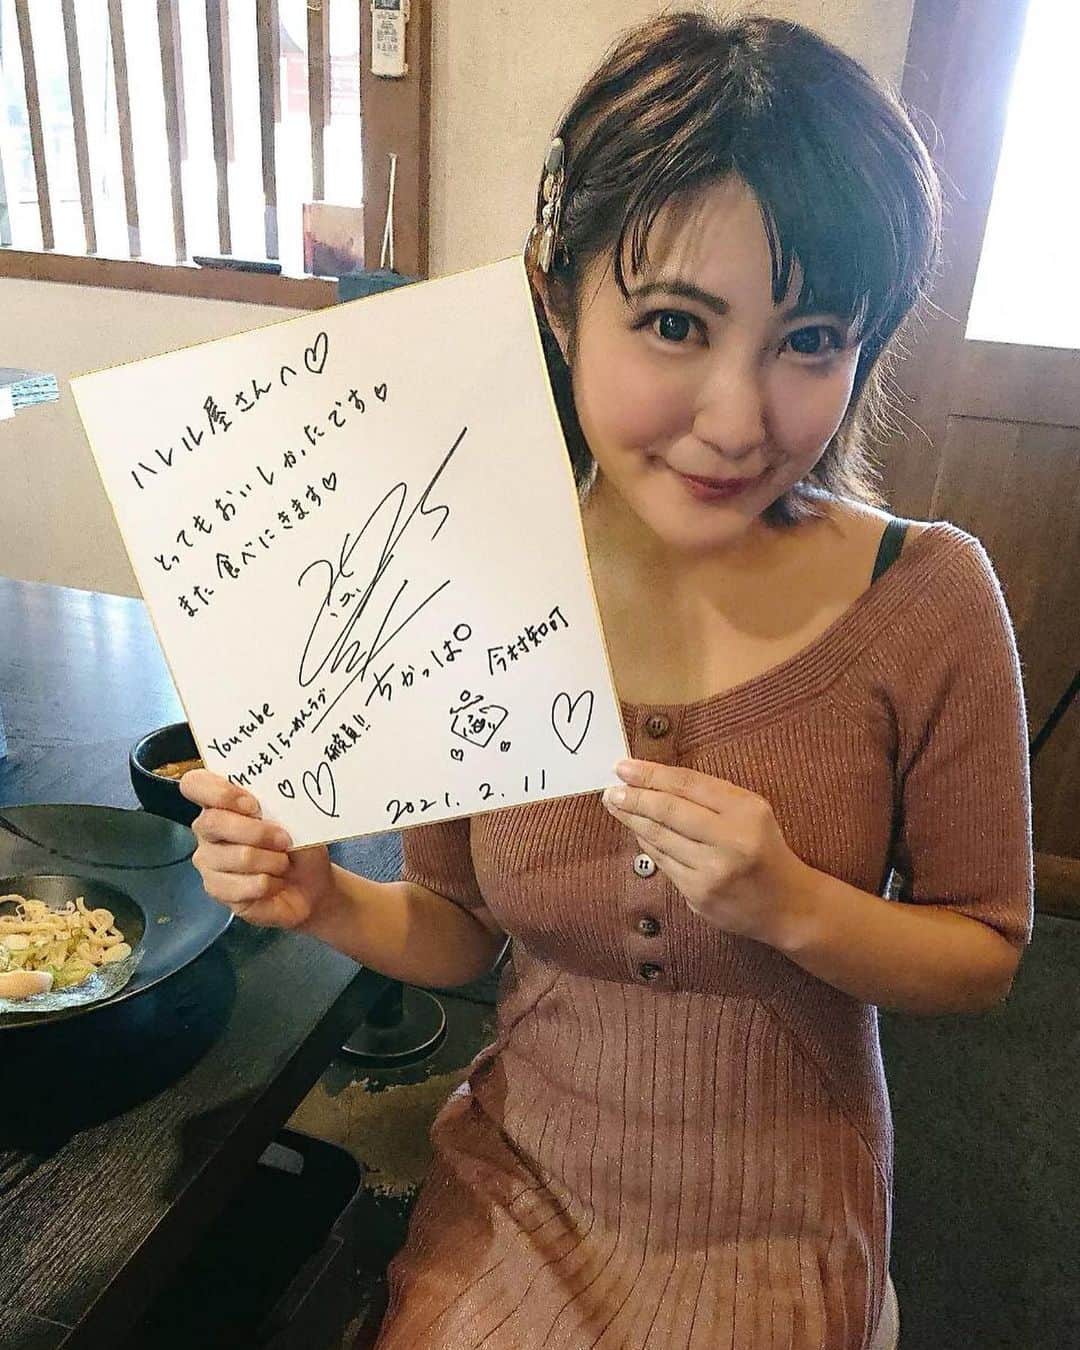 ハレル屋さんへ♡
とってもおいしかったです♡
また食べにきます♡
ちかっぱ
今村知可
YouTube
らーめんラブ
研究員!!
2021.2.11